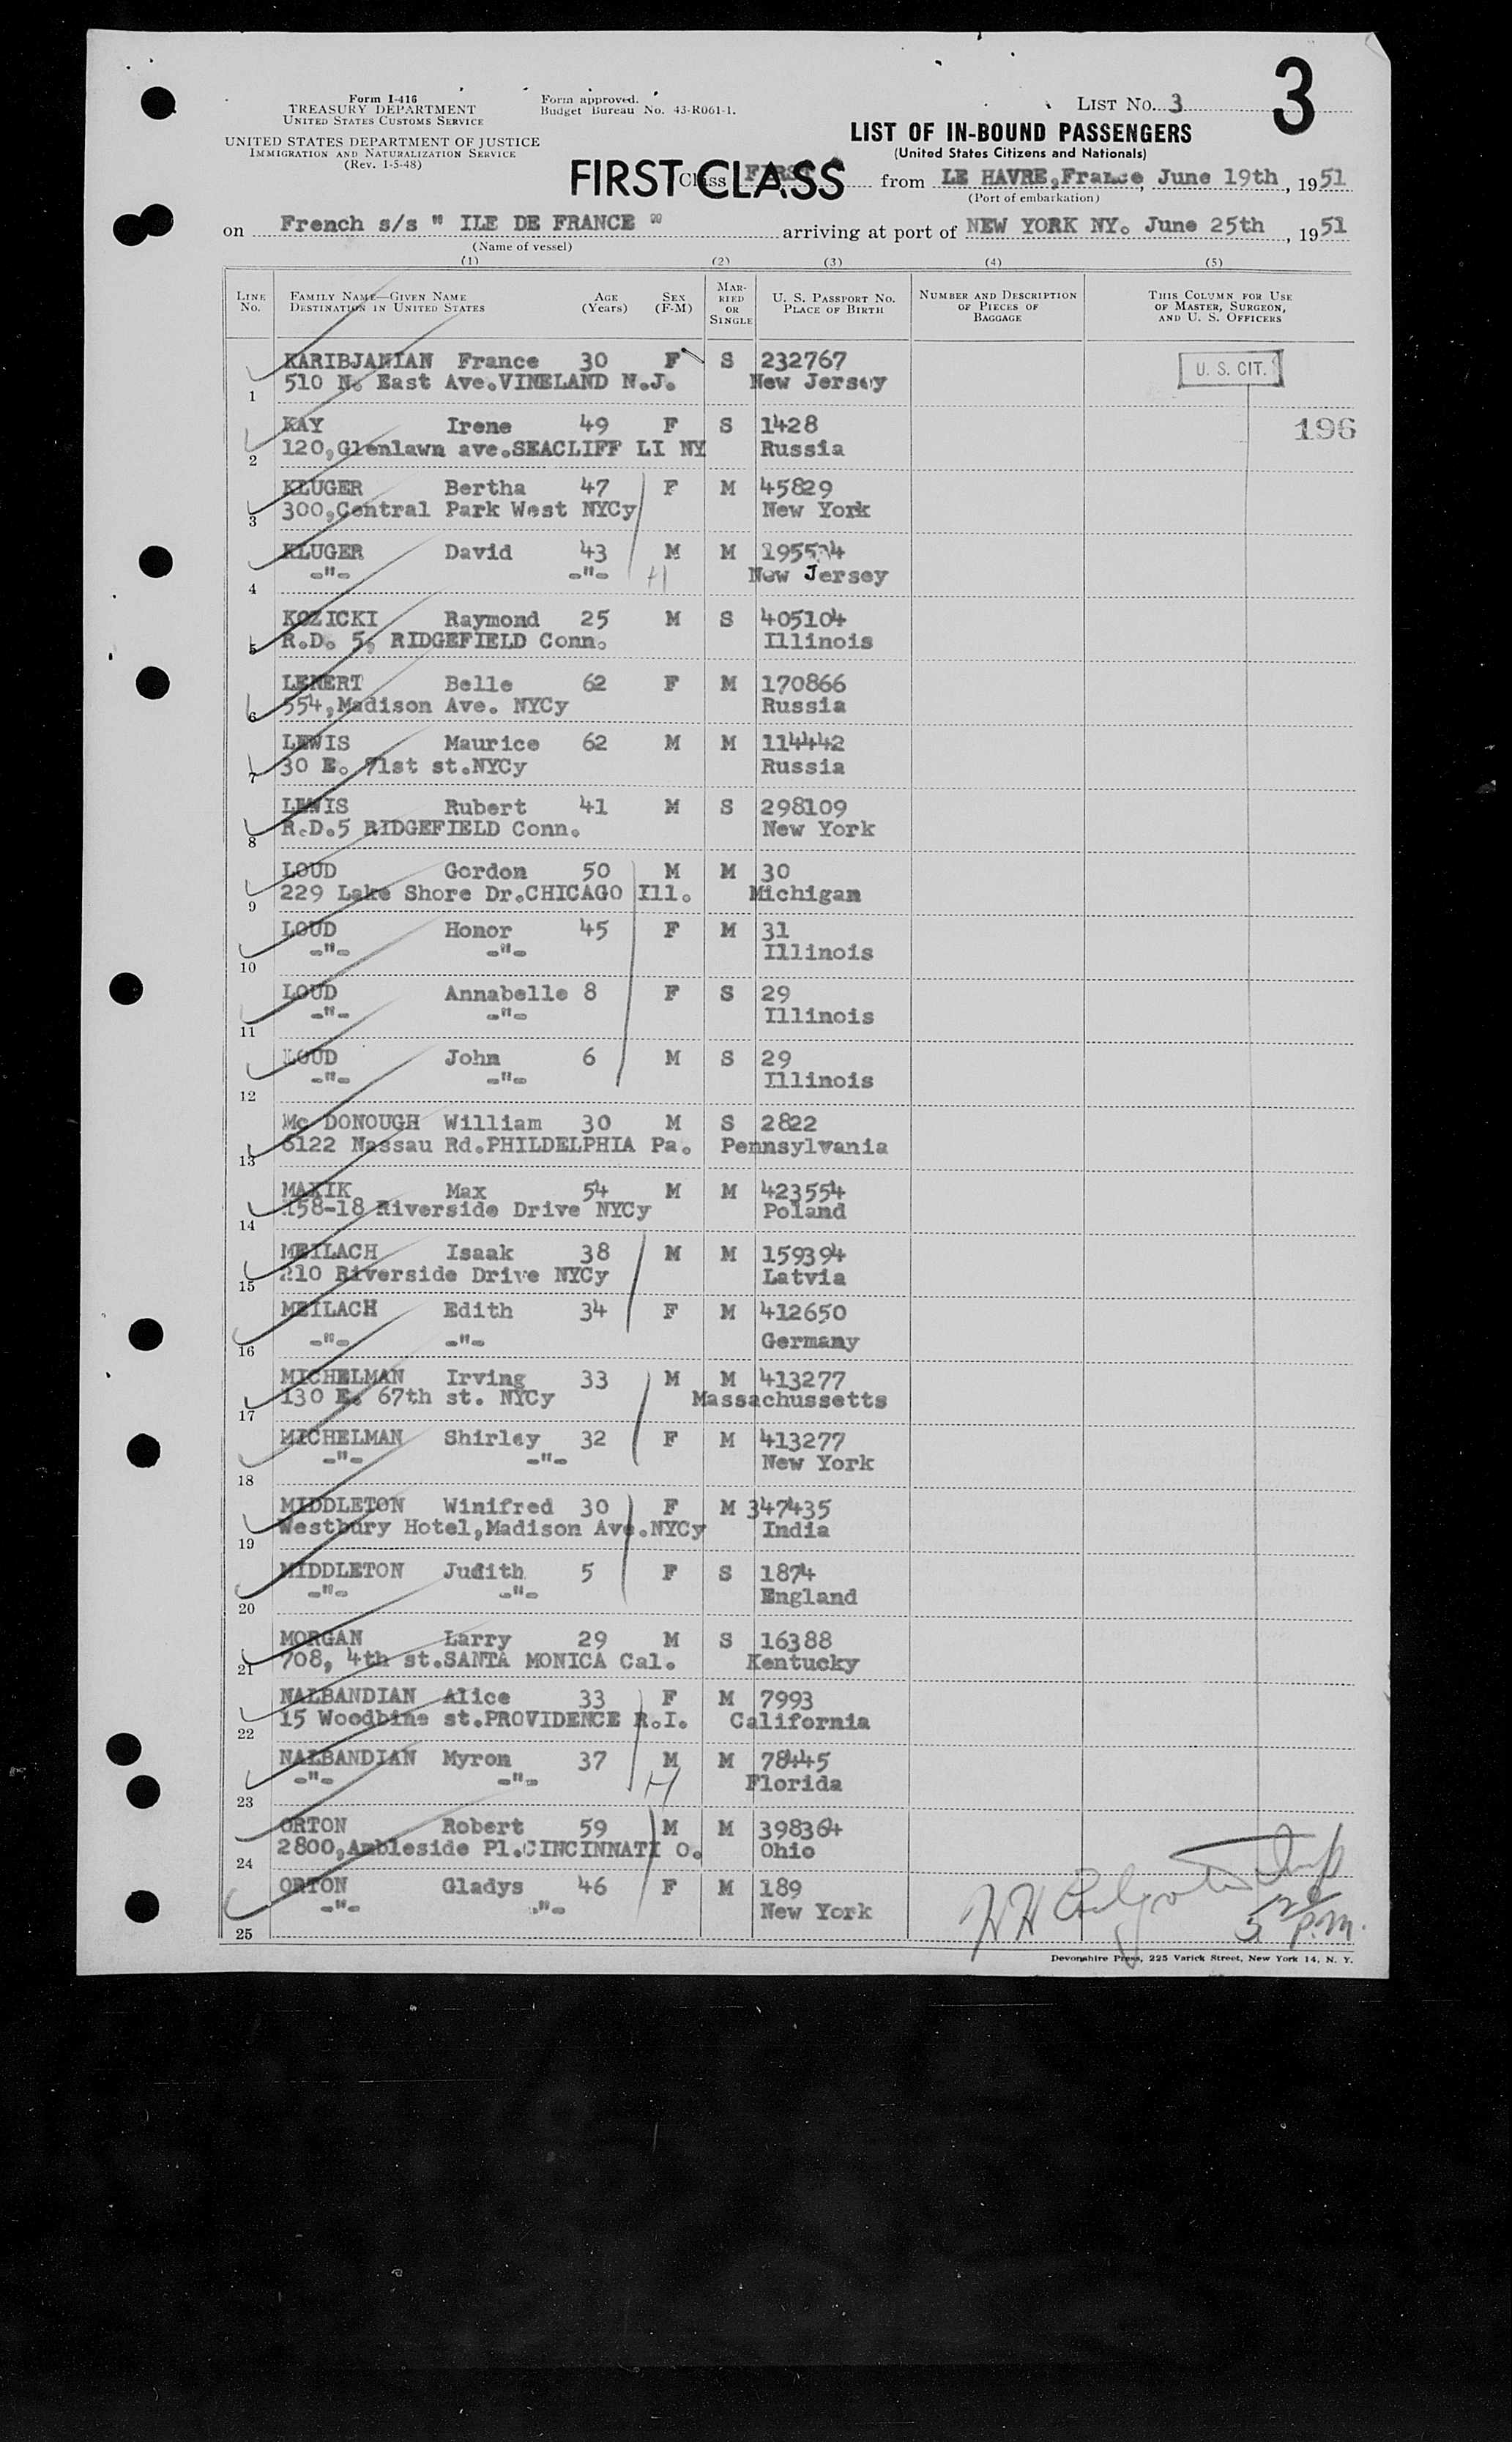 3
Form I-416
TREASURY DEPARTMENT
UNITED STATES CUSTOMS SERVICE
UNITED STATES DEPARTMENT OF JUSTICE
IMMIGRATION AND NATURALIZATION SERVICE
(Rev. 1-5-48)
Form approved.
Budget Bureau No. 43-R061-1.
LIST NO. 3
LIST OF IN-BOUND PASSENGERS
(United States Citizens and Nationals)
FIRST CLASS
Class FIRST from LE HAVRE,France, June 19th, 1951
(Port of embarkation)
on French s/s " ILE DE FRANCE " arriving at port of NEW YORK NY. June 25th, 1951
(Name of vessel)
(1) (2) (3) (4) (5)
LINE NO. FAMILY NAME—GIVEN NAME DESTINATION IN UNITED STATES AGE (Years) SEX (F-M) MARRIED OR SINGLE U. S. PASSPORT NO. PLACE OF BIRTH NUMBER AND DESCRIPTION OF PIECES OF BAGGAGE THIS COLUMN FOR USE OF MASTER, SURGEON, AND U. S. OFFICERS
KARIBJANIAN France 30 F S 232767 U. S. CIT.
1 510 N. East Ave.VINELAND N.J. New Jersey
KAY Irene 49 F S 1428 196
2 120,Glenlawn ave.SEACLIFF LI NY Russia
KLUGER Bertha 47 F M 45829
3 300,Central Park West NYCy New York
KLUGER David 43 M M
4 -"- -"- H New Jersey
KOZICKI Raymond 25 M S 405104
5 R.D. 5, RIDGEFIELD Conn. Illinois
LENERT Belle 62 F M 170866
6 554,Madison Ave. NYCy Russia
LEWIS Maurice 62 M M 114442
7 30 E. 71st st.NYCy Russia
LEWIS Rubert 41 M S 298109
8 R.D.5 RIDGEFIELD Conn. New York
LOUD Gordon 50 M M 30
9 229 Lake Shore Dr.CHICAGO Ill. Michigan
LOUD Honor 45 F M 31
10 -"- -"- Illinois
LOUD Annabelle 8 F S 29
11 -"- -"- Illinois
LOUD John 6 M S 29
12 -"- -"- Illinois
Mc DONOUGH William 30 M S 2822
13 6122 Nassau Rd.PHILDELPHIA Pa. Pennsylvania
MAXIK Max 54 M M 423554
14 158-18 Riverside Drive NYCy Poland
MEILACH Isaak 38 M M 159394
15 210 Riverside Drive NYCy Latvia
MEILACH Edith 34 F M 412650
16 -"- -"- Germany
MICHELMAN Irving 33 M M 413277
17 130 E. 67th st. NYCy Massachussetts
MICHELMAN Shirley 32 F M 413277
18 -"- -"- New York
MIDDLETON Winifred 30 F M 347435
19 Westbury Hotel,Madison Ave.NYCy India
MIDDLETON Judith 5 F S 1874
20 -"- -"- England
MORGAN Larry 29 M S 16388
21 708, 4th st.SANTA MONICA Cal. Kentucky
NALBANDIAN Alice 33 F M 7993
22 15 Woodbine st.PROVIDENCE R.I. California
NALBANDIAN Myron 37 M M 78445
23 -"- -"- H Florida
ORTON Robert 59 M M 398364
24 2800,Ambleside Pl.CINCINNATI O. Ohio
ORTON Gladys 46 F M 189
25 -"- -"- New York
P.M.
Devonshire Press, 225 Varick Street, New York 14, N. Y.